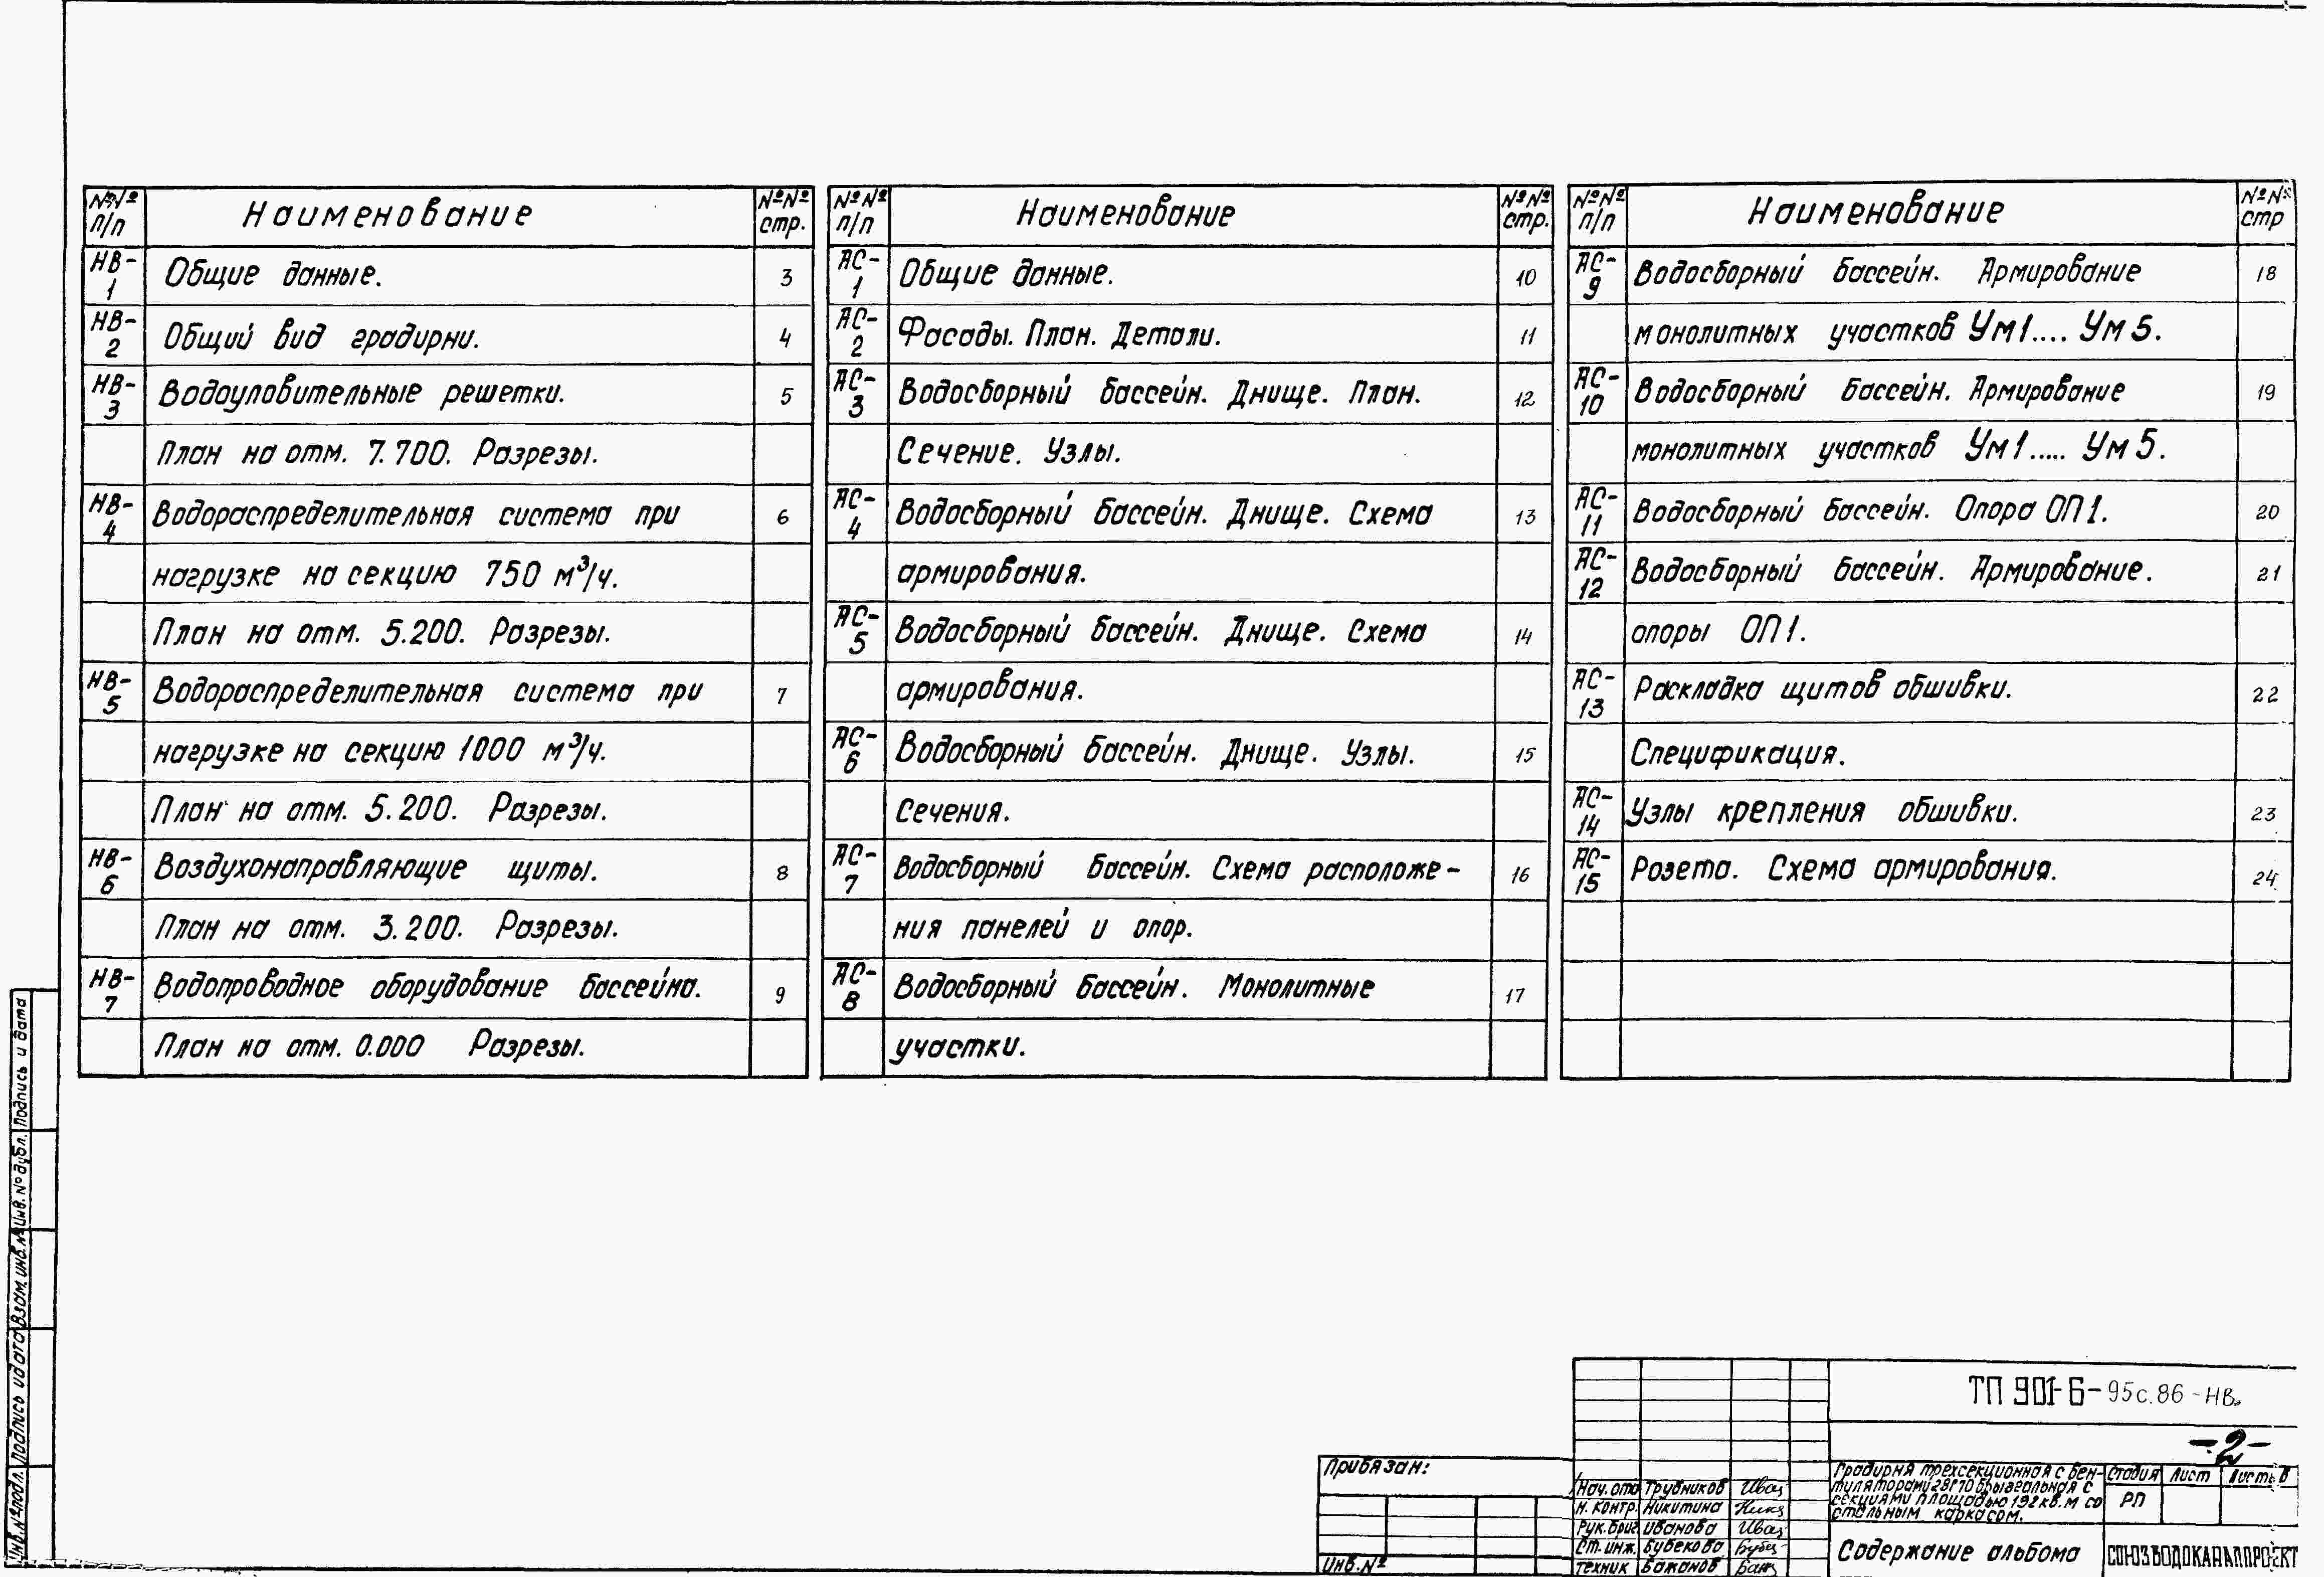 №№ п/п Наименование №№ стр.
НВ-1 Общие данные. 3
НВ-2 Общий вид градирни. 4
НВ-3 Водоуловительные решетки. 5
План на отм. 7.700. Разрезы.
НВ-4 Водораспределительная система при 6
нагрузке на секцию 750 м³/ч.
План на отм. 5.200. Разрезы.
НВ-5 Водораспределительная система при 7
нагрузке на секцию 1000 м³/ч.
План на отм. 5.200. Разрезы.
НВ-6 Воздухонаправляющие щиты. 8
План на отм. 3.200. Разрезы.
НВ-7 Водопроводное оборудование бассейна. 9
План на отм. 0.000 Разрезы.
№№ п/п Наименование №№ стр.
АС-1 Общие данные. 10
АС-2 Фасады. План. Детали. 11
АС-3 Водосборный бассейн. Днище. План. 12
Сечение. Узлы.
АС-4 Водосборный бассейн. Днище. Схема 13
армирования.
АС-5 Водосборный бассейн. Днище. Схема 14
армирования.
АС-6 Водосборный бассейн. Днище. Узлы. 15
Сечения.
АС-7 Водосборный бассейн. Схема расположе- 16
ния панелей и опор.
АС-8 Водосборный бассейн. Монолитные 17
участки.
№№ п/п Наименование №№ стр
АС-9 Водосборный бассейн. Армирование 18
монолитных участков Ум1.... Ум5.
АС-10 Водосборный бассейн. Армирование 19
монолитных участков Ум1..... Ум5.
АС-11 Водосборный бассейн. Опора ОП1. 20
АС-12 Водосборный бассейн. Армирование. 21
опоры ОП1.
АС-13 Раскладка щитов обшивки. 22
Спецификация.
АС-14 Узлы крепления обшивки. 23
АС-15 Розета. Схема армирования. 24
Инв.№подл. Подпись и дата Взам.инв.№ Инв.№дубл. Подпись и дата
ТП 901-6-95с.86-НВ
-2-
Привязан:
Инв.№
Нач.отд Трубников
Н.контр. Никитина
Рук.бриг Иванова
Ст.инж. Бубекова
техник Бажанов
Градирня трехсекционная с вен-
тиляторами 2ВГ70
секциями площадью 192кв.м со
стальным каркасом.
Стадия Лист Листов
РП
Содержание альбома
СОЮЗВОДОКАНАЛПРОЕКТ